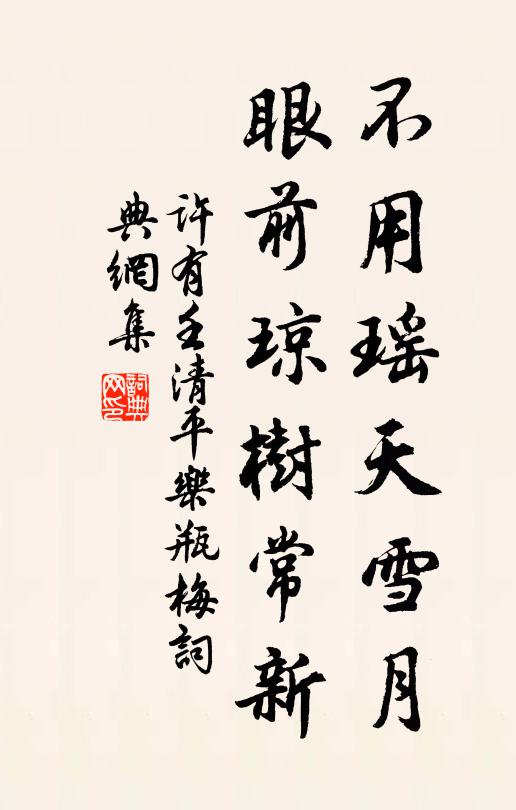 不用瑶天雪月
眼前琼樹常新
許有壬清平樂瓶梅詞
典網集
詞典网印